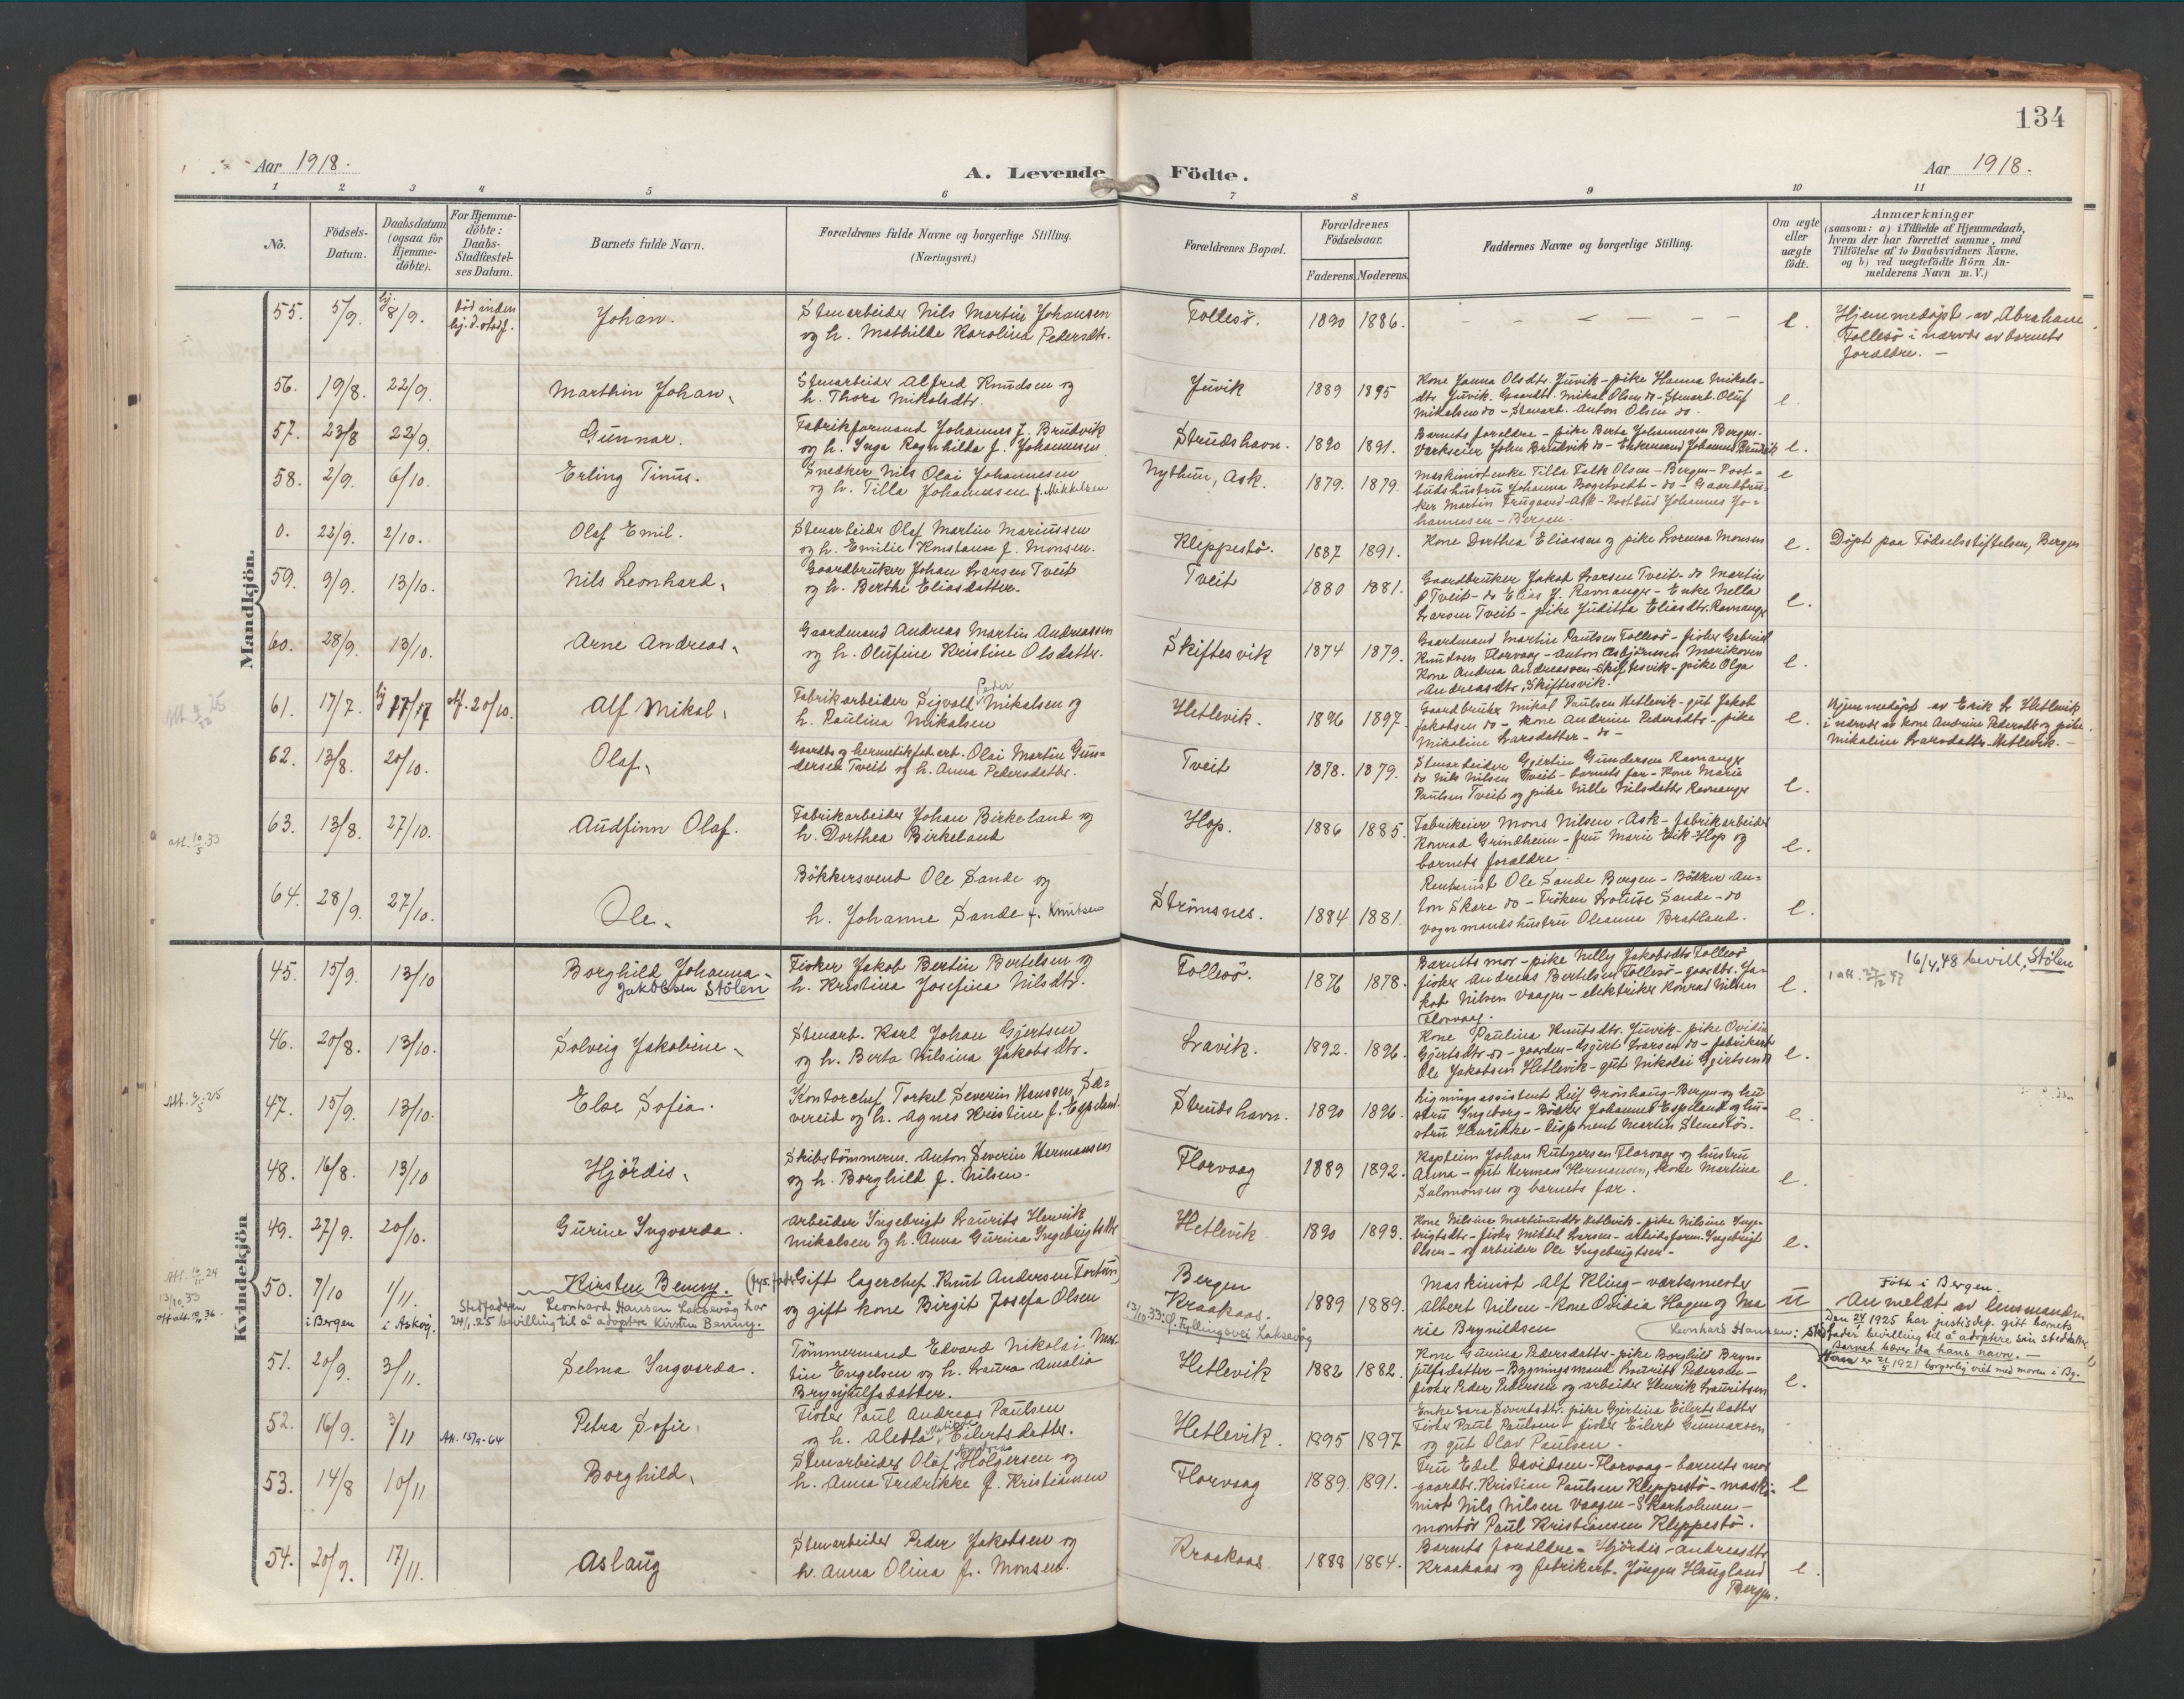 134
Aar 1918.
A. Levende Födte.
Aar 1918.
1 2 3 4 5 6 7 8 9 10 11
No.
Födsels-
Datum.
Daabsdatum
(ogsaa for
Hjemme-
döbte).
For Hjemme-
döbte:
Daabs-
Stadfæstel-
ses Datum.
Barnets fulde Navn.
Forældrenes fulde Navne og borgerlige Stilling.
(Næringsvei.)
Forældrenes Bopæl.
Forældrenes
Födselsaar.
Faderens. Moderens.
Faddernes Navne og borgerlige Stilling.
Om ægte
eller
uægte
födt.
Anmærkninger
(saasom: a) i Tilfælde af Hjemmedaab,
hvem der har forrettet samme, med
Tilföielse af to Daabsvidners Navne,
og b) ved uægtefödte Börn An-
melderens Navn m. V.)
Mandkjön.
55. 5/9. hj. 8/9. död inden
hj. d. stadf.
Johan.
Stenarbeider Nils Martin Johansen
og h. Mathilde Karolina Pedersdtr.
Follesö. 1890 1886. – – – – – – e.
Hjemmedöpt av Abraham
Follesö i nærvær av barnets
forældre. –
56. 19/8. 22/9. Marthin Johan.
Stenarbeider Alfred Knudsen og
h. Thora Mikalsdtr.
Juvik 1889 1895
Kone Janna Olsdtr. Juvik – pike Hanna Mikals-
dtr. Juvik. Gaardbr. Mikal Olsen do – Stenarb. Oluf
Mikalsen do – Stenarb. Anton Olsen do. e.
57. 23/8 22/9. Gunnar.
Fabrikformand Johannes J. Brudvik
og h. Inga Ragnhilda f. Johannesen
Strudshavn. 1890 1891.
Barnets forældre – pike Berta Johannesen Bergen.
Verkseier John Brudvik do – Enkemand Johannes Brudvik e.
58. 2/9. 6/10. Erling Tinus.
Snedker Nils Olai Johannesen
og h. Tilla Johannesen f. Mikkelsen
Nythun, Ask. 1879. 1879.
Maskinistenke Tilla Falk Olsen – Bergen – Post-
budshustru Johanna Bogetvedt – do – Gaardbru-
ker Martin Frugaard – Ask – Postbud Johannes Jo-
hannesen – Bergen. e
0. 22/9. 2/10. Olaf Emil.
Stenarbeider Olaf Martin Mariussen
og h. Emilie Konstanse f. Monsen.
Kleppestö. 1887 1891.
Kone Dorthea Eliassen og pike Lorensa Monsen e.
Döpt paa Födselsstiftelsen, Bergen
59. 9/9. 13/10. Nils Leonhard.
Gaardbruker Johan Larsen Tveit
og h. Berthe Eliasdatter.
Tveit 1880 1881.
Gaardbruker Jakob Larsen Tveit – do Martin
P Tveit – do Elias J. Ramanger – Enke Nella
Larsen Tveit – pike Juditta Eliasdtr. Ramanger e.
60. 28/9. 13/10. Arne Andreas.
Gaardmand Andreas Martin Andreassen
og h. Olufine Kristine Olsdatter.
Skiftesvik 1874 1879.
Gaardmand Martin Paulsen Follesö – fisker Gabriel
Knudsen Florvaag – Anton Asbjörnsen Marikoven
Kone Andrea Andreassen – Skiftesvik – pike Olga
Andreasdtr., Skiftesvik. e.
61. 17/7. hj 17/7 stf. 20/10. Alf Mikal.
Fabrikarbeider Sigvald Peder Mikalsen og
h. Paulina Mikalsen
Hetlevik. 1896 1897.
Gaardbruker Mikal Paulsen Hetlevik – gut Jakob
Jakobsen do – kone Andrine Pedersdtr – pike
Mikaline Larsdatter – do – e.
Hjemmedöpt av Erik L Hetlevik
i nærvær av kone Andrine Pedersdtr og pike
Mikaline Larsdatter Hetlevik. –
62. 13/8. 20/10. Olaf.
Gaardbr. og hermetikfab.arb. Olai Martin Gun-
dersen Tveit og h. Anna Pedersdatter.
Tveit 1878. 1879.
Stenarbeider Gjertin Gundersen Ramanger
do Nils Nilsen Tveit – barnets far – Kone Marie
Paulsen Tveit og pike Nille Nilsdatter Ramanger e.
att. 10/5 33
63. 13/8. 27/10. Audfinn Olaf.
Fabrikarbeider Johan Birkeland og
h. Dorthea Birkeland
Hop. 1886 1885.
Fabrikeier Mons Nilsen – Ask – fabrikarbeider
Konrad Grindheim – fru Marie Eik – Hop og
barnets forældre. e.
64. 28/9. 27/10. Ole.
Bökkersvend Ole Sande og
h. Johanne Sande f. Knutsen
Strömsnes. 1884 1881.
Rentenist Ole Sande Bergen – Bödker An-
ton Skare do – Fröken Lovise Sande – do
vognmandshustru Oleanna Bratland. e.
Kvindekjön
45. 15/9. 13/10 Borghild Johanna
Jakobsen Stölen
Fisker Jakob Bertin Bertelsen og
h. Kristina Josefina Nilsdtr.
Follesö. 1876 1878.
Barnets mor – pike Nelly Jakobsdtr Follesö
fisker Andreas Bertelsen Follesö – gaardbr. Ja-
kob Nilsen Vaagen – elektriker Konrad Nilsen
Florvaag. e.
1 att. 27/2 47
16/4.48 bevill. Stölen
46. 20/8. 13/10. Solveig Jakobine.
Stenarb. Karl Johan Gjertsen
og h. Berta Nilsina Jakobsdtr.
Lavik. 1892. 1896.
Kone Paulina Knutsdtr. Juvik – pike Ovidia
Gjertsdtr – do – gaardm – Gjert Larsen do – fabrikarb
Ole Jakobsen Hetlevik – gut Nikolai Gjertsen do e.
Att. 9/5 25
47. 15/9. 13/10. Else Sofia.
Kontorchef Torkel Severin Hansen, Sæ-
vereid og h. Agnes Kristine f. Espeland.
Strudshavn. 1890 1896.
Ligningsassistent Leif Grönhaug – Bergen og hu
stru Ingeborg – Bödker Johannes Espeland og hu-
stru Henrikke – disponent Martin Stenestör. e.
48. 16/8. 13/10 Hjördis.
Skibstömmerm. Anton Severin Hermansen
og h. Borghild f. Nilsen.
Florvaag 1889 1892.
Kaptein Johan Rutgersen Florvaag og hustru
Anna – gut Herman Hermansen, kone Martine
Salomonsen og barnets far. e.
49. 27/9. 20/10. Gurine Ingvarda.
Arbeider Ingebrigt Laurits Henrik
Mikalsen og h. Anna Gurina Ingebrigtsdtr
Hetlevik 1890 1893.
Kone Nilsine Martinusdtr Hetlevik – pike Nilsine Inge-
brigtsdtr – fisker Mikkel Larsen – arbeidsform. Ingebrigt
Olsen – og arbeider Ole Ingebrigtsen – e.
Att. 16/11 24
13/10.33
50. 7/10 i Bergen 1/11. i Askøy. Kirsten Benny.
Stedfaderen Leonhard Hansen Laksevåg har
24/1.25 bevilling til å adoptere Kirsten Benny.
Gift lagerchef Knut Andersen Fortun,
og gift kone Birgit Josefa Olsen
Bergen
Kraakaas.
13/10.33: J. Fyllingsvei Laksevåg
1889 1889.
Maskinist Alf Kling – værksmester
Albert Nilsen – Kone Ovidia Hagen og Ma
rie Brynildsen u
Född i Bergen.
Anmeldt av lensmanden
Leonhard Hansen: sted
Den 24/1 1925 har justisdep. gitt barnets
fader bevilling til å adoptere sin steddatter
Barnet bærer da hans navn. –
Ham er 21/5 1921 borgerlig viet med moren i Bg.
51. 20/9. 3/11. Selma Ingvarda.
Tömmermand Edvard Nikolai Mar-
tin Engelsen og h. Laura Amalia
Brynjulfsdatter.
Hetlevik 1882 1882.
Kone Gurina Pedersdatter – pike Borghild Bryn-
julfsdatter – Bygningsmand Laurits Pedersen –
fisker Peder Pedersen og arbeider Henrik Lauritsen e.
52. 16/9. 3/11 Att. 15/9-64 Petra Sofie.
Fisker Paul Andreas Paulsen
og h. Aletta Eilertsdatter.
Hetlevik. 1895 1897
Enke Sara Sivertsdtr. pike Gjertina Eilertsdatter
Fisker Paul Paulsen – fisker Eilert Gunnarsen
og gut Olav Paulsen.
53. 14/8 10/11 Borghild.
Stenarbeider Olaf Andreas Holgersen og
h. Anna Fredrikke f. Kristiansen
Florvaag 1889. 1891.
Fru Edel Davidsen – Florvaag – barnets mor
gaardbr. Kristian Paulsen Kleppestö – maski-
nist Nils Nilsen Vaagen – Skarholmen –
montör Paul Kristiansen Kleppestö. e
54. 20/9. 17/11. Aslaug
Stenarbeider Peder Jakobsen og
h. Anna Olina f. Monsen.
Kraakaas 1888 1864.
Barnets forældre – Hjördis Andreasdtr
Kraakaas og fabrikarb. Jörgen Haugland
Bergen. e.